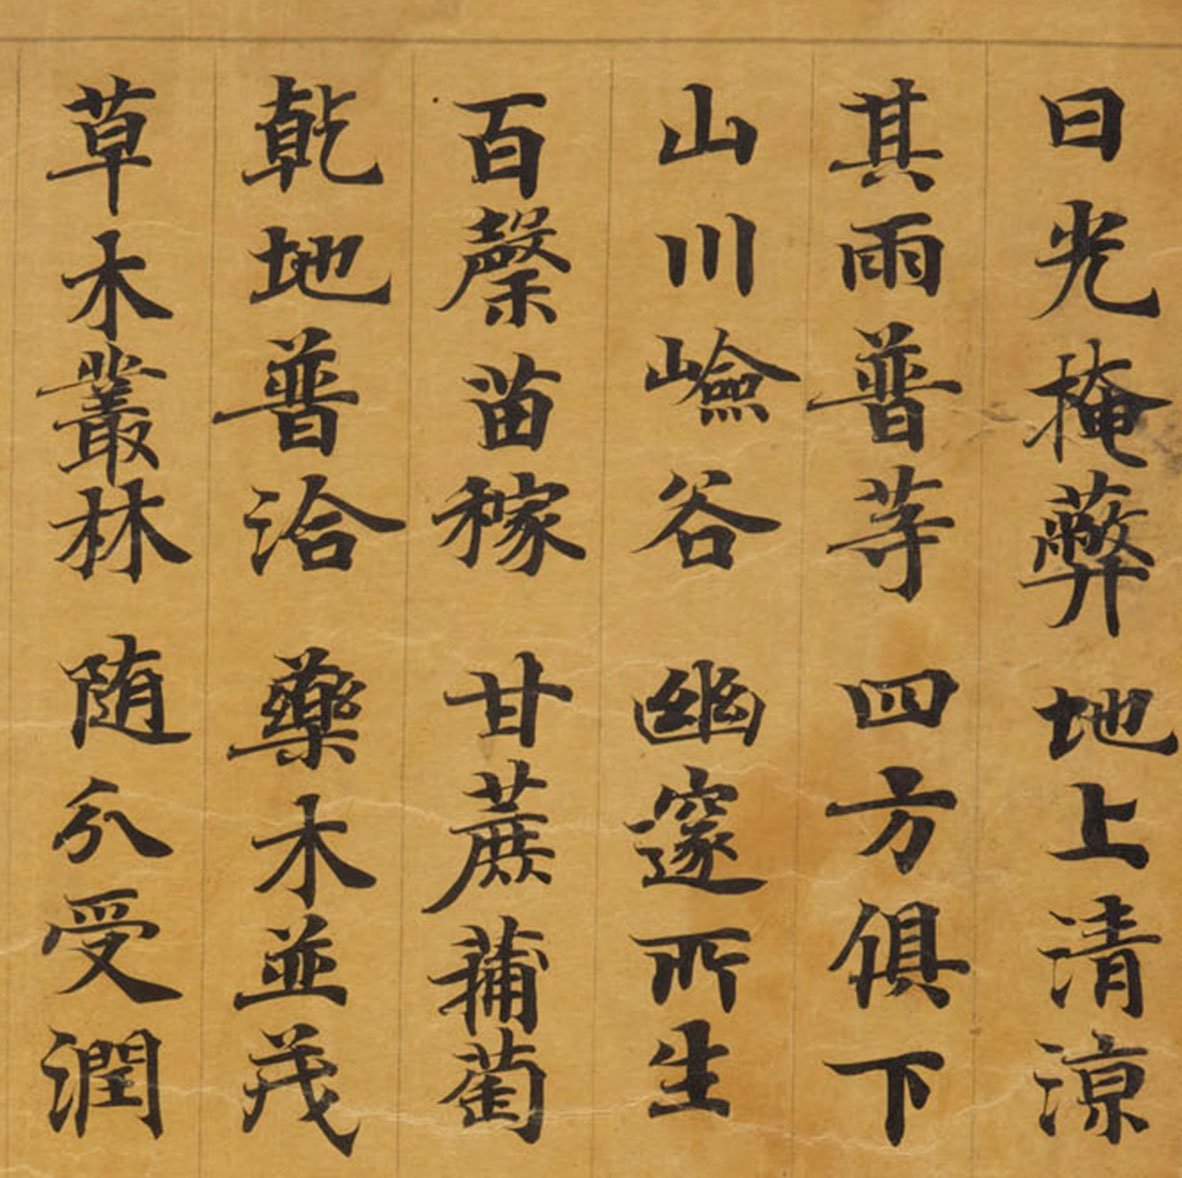 日光掩蔽 地上清涼
其雨普等 四方俱下
山川嶮谷 幽邃所生
百穀苗稼 甘蔗蒲萄
乾地普洽 藥木並茂
草木叢林 随分受潤